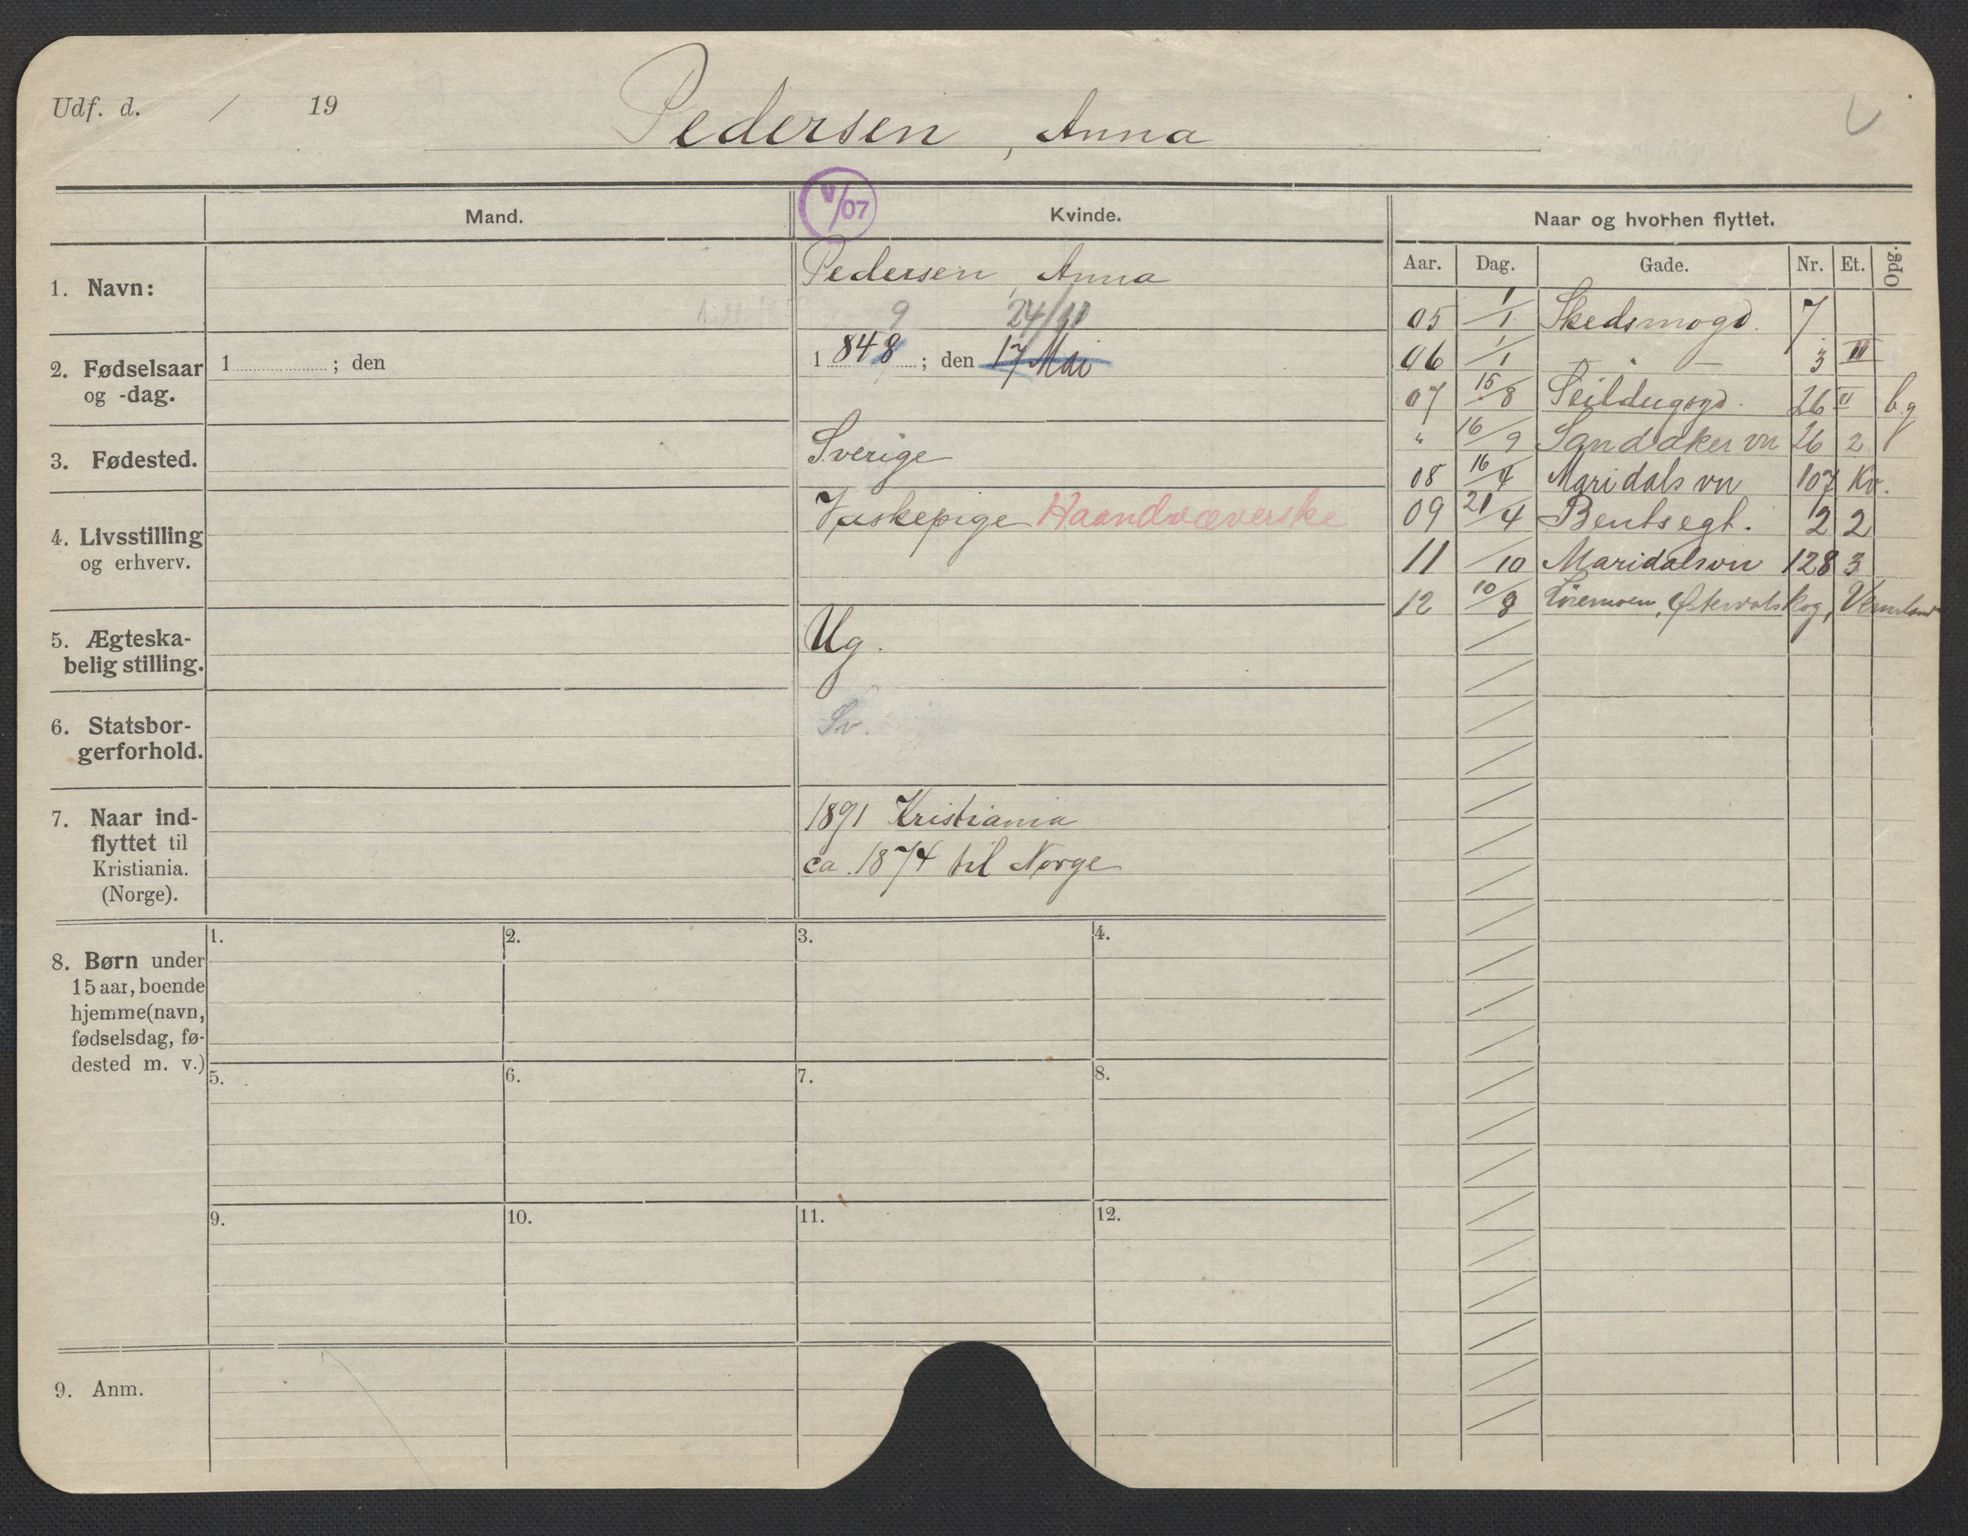 Udf. d. / 19
Pedersen, Anna
V/07
Mand.
Kvinde.
Naar og hvorhen flyttet.
Aar. Dag. Gade. Nr. Et. Opg.
1. Navn:
Pedersen, Anna
2. Fødselsaar
og -dag.
1 ; den
9 24/11
1 848 ; den 17 Mai
3. Fødested.
Sverige
4. Livsstilling
og erhverv.
Vaskepige Haandvæverske
5. Ægteska-
belig stilling.
Ug.
6. Statsbor-
gerforhold.
Sv.
7. Naar ind-
flyttet til
Kristiania.
(Norge).
1891 Kristiania
ca. 1874 til Norge
05 1/1 Skedsmogd. 7
06 1/1 " 3 III
07 15/8 Seildugsgd. 26 II b.g
" 16/9 Sandaker vn 26 2
08 16/4 Maridals vn 107 Kv.
09 21/4 Bentsegt. 12 2
11 /10 Maridalsvn 128 3
12 10/8 Østervalskog, Vermland
8. Børn under
15 aar, boende
hjemme (navn,
fødselsdag, fø-
dested m. v.)
1. 2. 3. 4.
5. 6. 7. 8.
9. 10. 11. 12.
9. Anm.